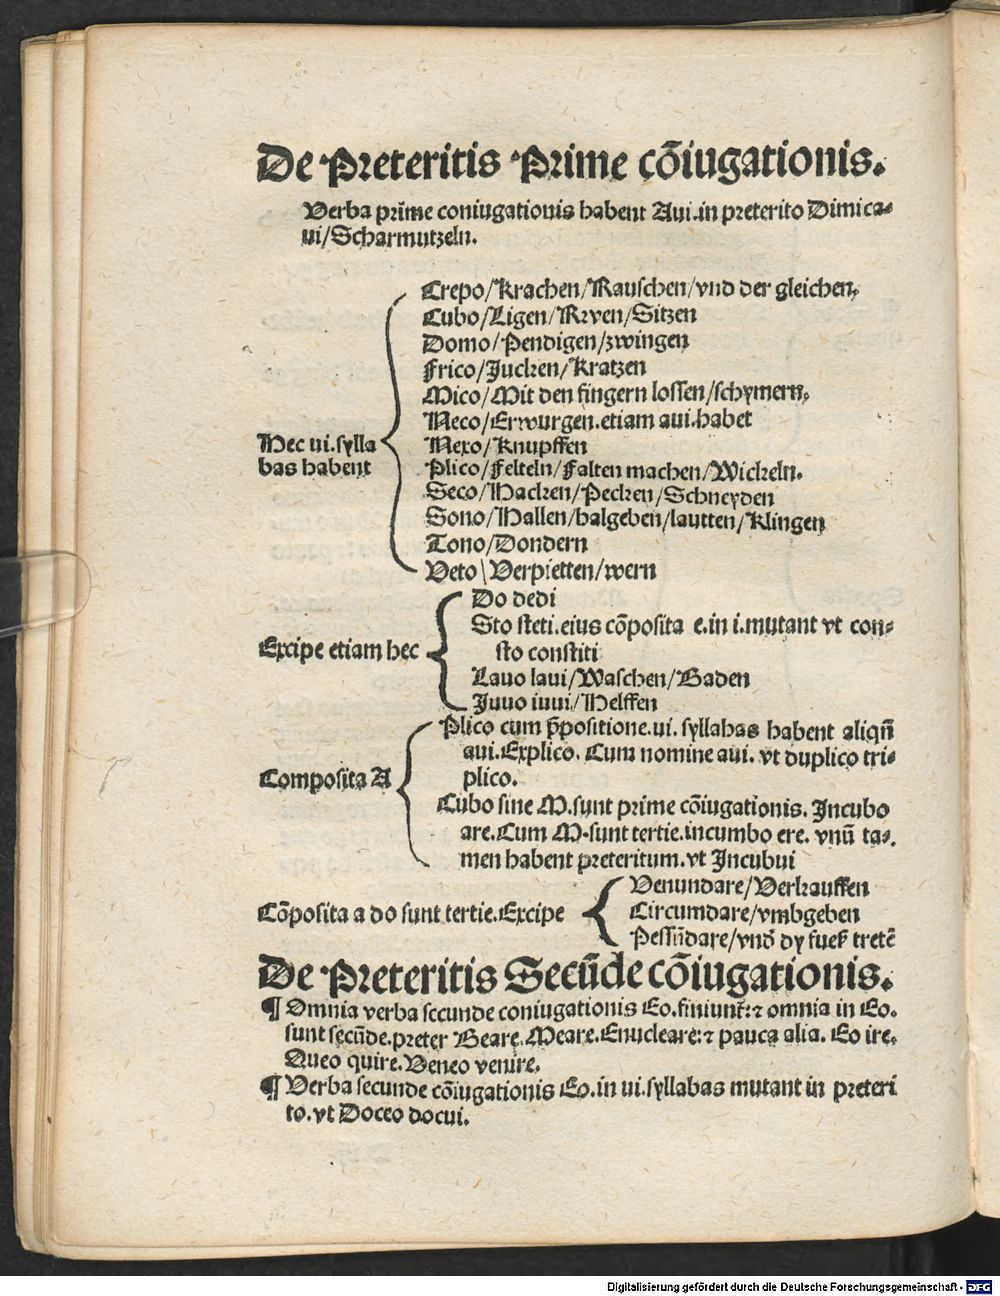 De Preteritis Prime cōiugationis.
Verba prime coniugationis habent Aui.in preterito Dimica⸗
ui/Scharmutzeln.
Crepo/Krachen/Rauschen/vnd der gleichen,
Cubo/Ligen/Rrven/Sitzen
Domo/Pendigen/zwingen
Frico/Jucken/Kratzen
Mico/Mit den fingern lossen/schymern,
Neco/Erwurgen.etiam aui.habet
Hec ui.sylla
Nexo/Knupffen
bas habent
Plico/Felteln/Falten machen/Wickeln.
Seco/Hacken/Pecken/Schneyden
Sono/Hallen/halgeben/lautten/Klingen
Tono/Dondern
Veto\Verpietten/wern
Do dedi
Sto steti.eius cōposita e.in i.mutant vt con⸗
sto constiti
Excipe etiam hec
Lauo laui/Waschen/Baden
Juuo iuui/Helffen
Plico cum p̄positione.ui. syllabas habent aliqñ
aui.Explico. Cum nomine aui. vt duplico tri⸗
plico.
Composita A
Cubo sine M.sunt prime cōiugationis. Incubo
are.Cum M.sunt tertie.incumbo ere. vnū ta⸗.
men habent preteritum.vt Incubui
Venundare/Verkauffen
Cōposita a do sunt tertie.Excipe
Circumdare/vmbgeben
Pessūdare/vnd dy fuess tretē
De Preteritis Secūde cōiugationis.
¶ Omnia verba secunde coniugationis Eo.finiunt:⁊ omnia in Eo.
sunt secūde.preter Beare.Meare.Enucleare:⁊ pauca alia. Eo ire.
Queo quire.Veneo venire.
¶ Verba secunde cōiugationis Eo.in ui.syllabas mutant in preteri
to.vt Doceo docui.
Digitalisierung gefördert durch die Deutsche Forschungsgemeinschaft - DFG